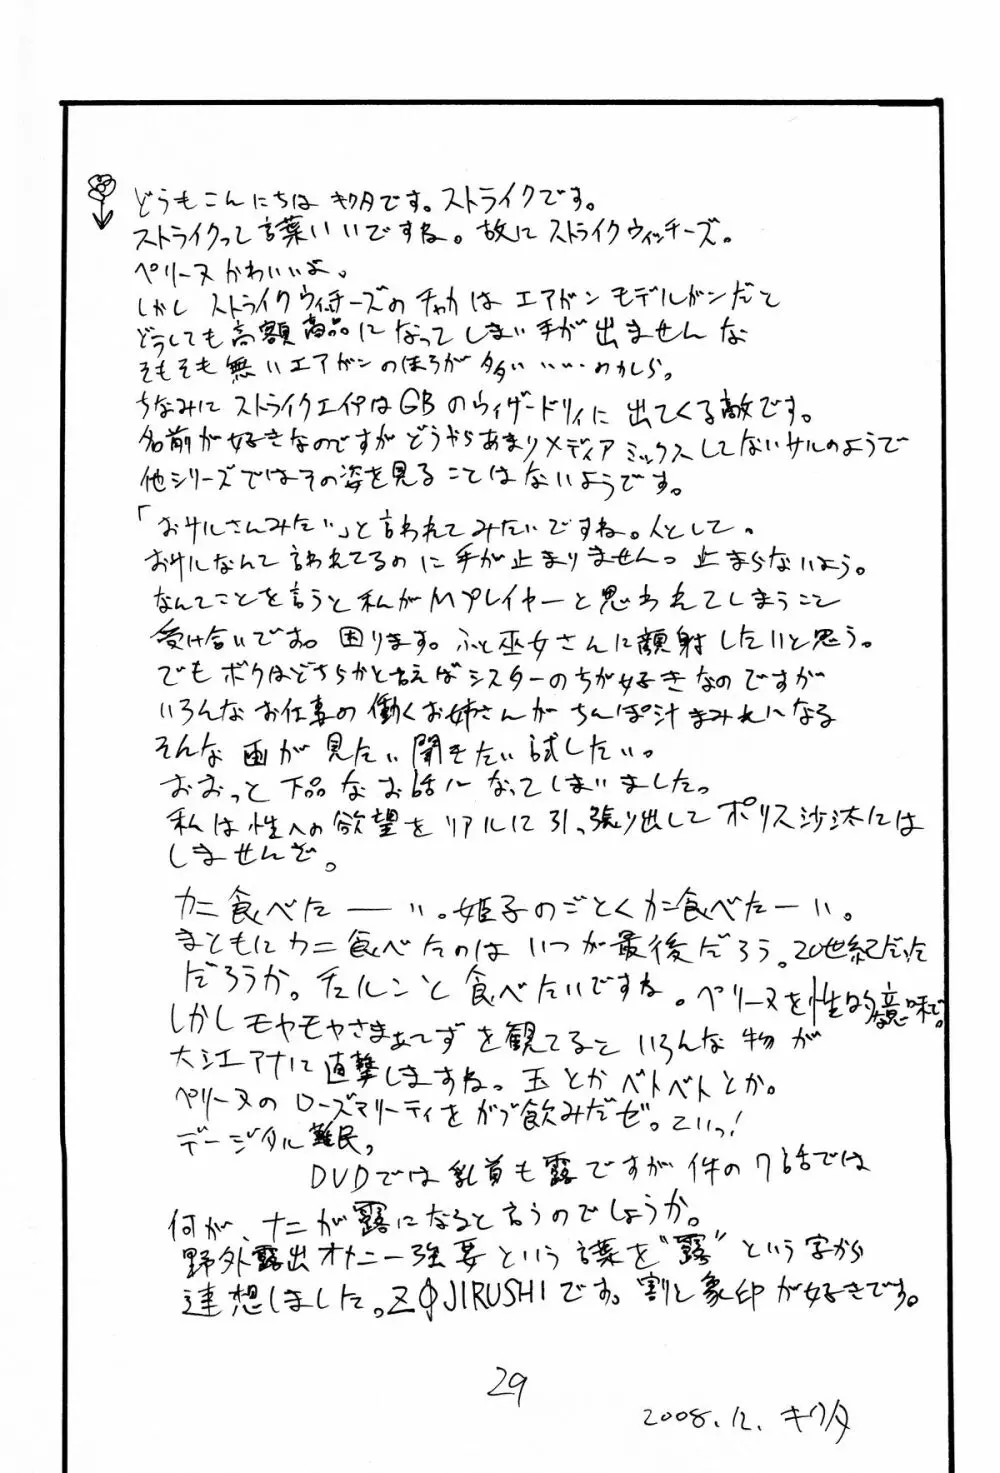 どうもこんにちは キクタです。ストライクです。
ストライクって言葉いいですね。故にストライクウィッチーズ。
ペリーヌかわいいよ。
しかし ストライクウィッチーズのチャカは エアガン モデルガンだと
どうしても高額商品になってしまい手が出ませんな
そもそも無いエアガンのほうが多い……かしら。
ちなみに ストライクエイプはGBのウィザードリィに出てくる敵です。
名前が好きなのですがどうやらあまりメディアミックスしてないサルのようで
他シリーズではその姿を見ることはないようです。
「おサルさんみたい」と言われてみたいですね。人として。
おサルなんて言われてるのに手が止まりませんっ止まらないよう。
なんてことを言うと私がMプレイヤーと思われてしまうこと
受け合いです。困ります。ふと巫女さんに顔射したいと思う。
でもボクはどちらかと言えばシスターのちが好きなのですが
いろんなお仕事の働くお姉さんがちんぽ汁まみれになる
そんな画が見たい聞きたい試したい。
おおっと下品なお話になってしまいました。
私は性への欲望をリアルに引っ張り出してポリス沙汰には
しませんぞ。
カニ食べたーい。姫子のごとくカニ食べたーい。
まともにカニ食べたのはいつが最後だろう。20世紀だった
だろうか。チュルンと食べたいですね。ペリーヌを性的な意味で。
しかしモヤモヤさまぁ〜ずを観てるといろんな物が
大江アナに直撃しますね。玉とかベトベトとか。
ペリーヌのローズマリーティをがぶ飲みだぜ。こいっ!
デージタル難民。
DVDでは乳首も露ですが件の7話では
何が、ナニが露になると言うのでしょうか。
野外露出オナニー強要という言葉を“露”という字から
連想しました。ZΦJIRUSHIです。割と象印が好きです。
29
2008.12. キクタ